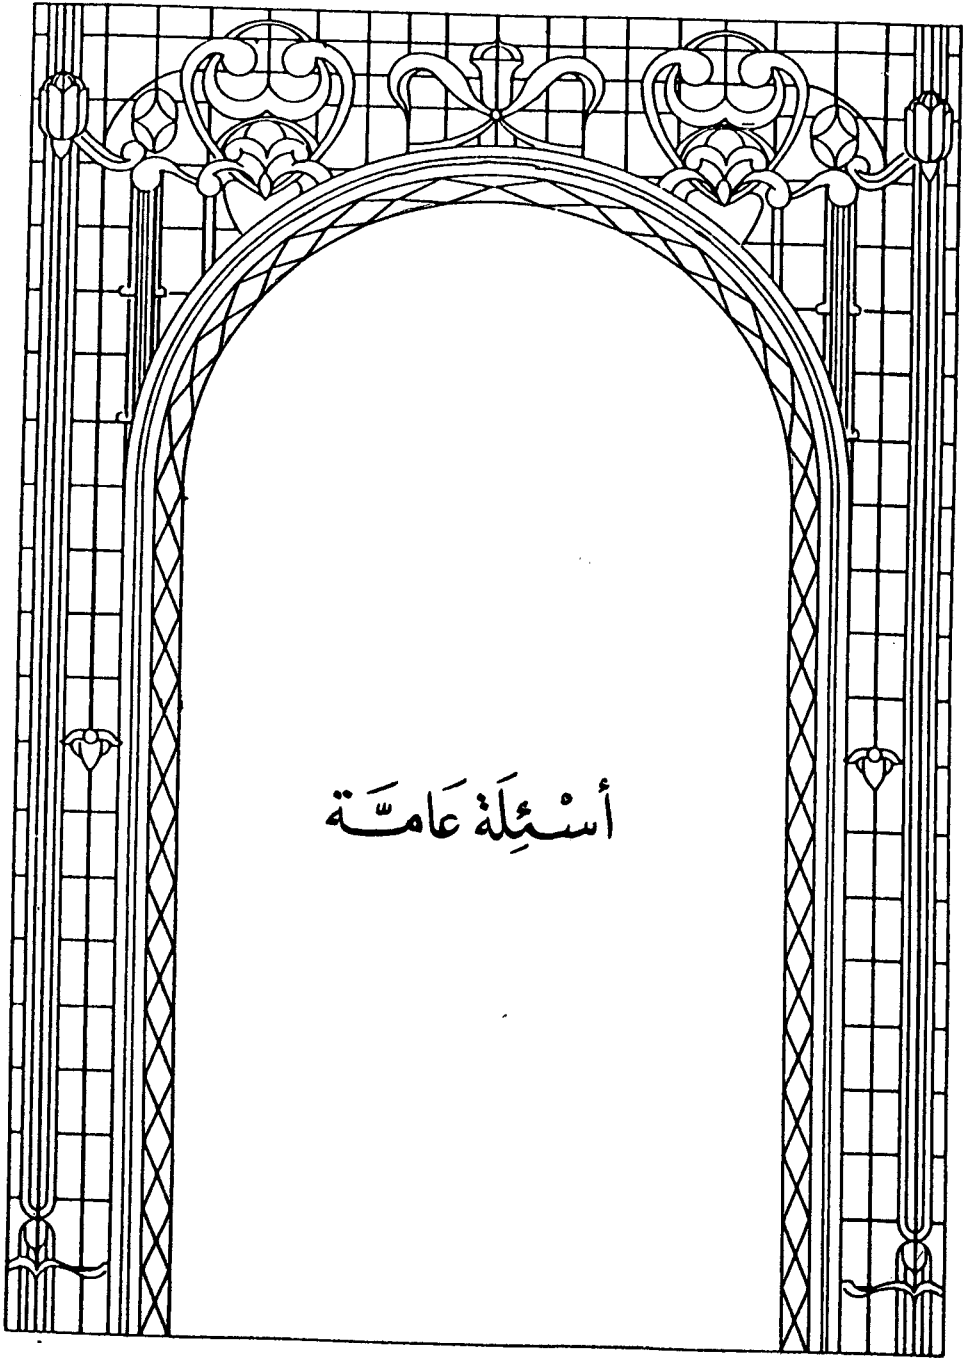 أَسْئِلَة عَامَّة